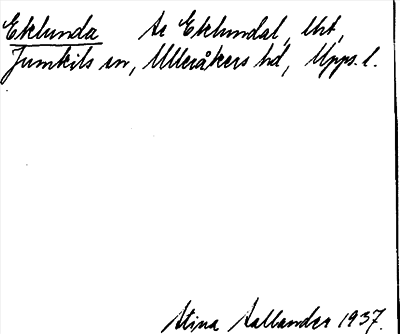 Eklunda se Eklundal, lht,
Jumkils sn, Ulleråkers hd, Upps. l.
Stina Sallander 1937.